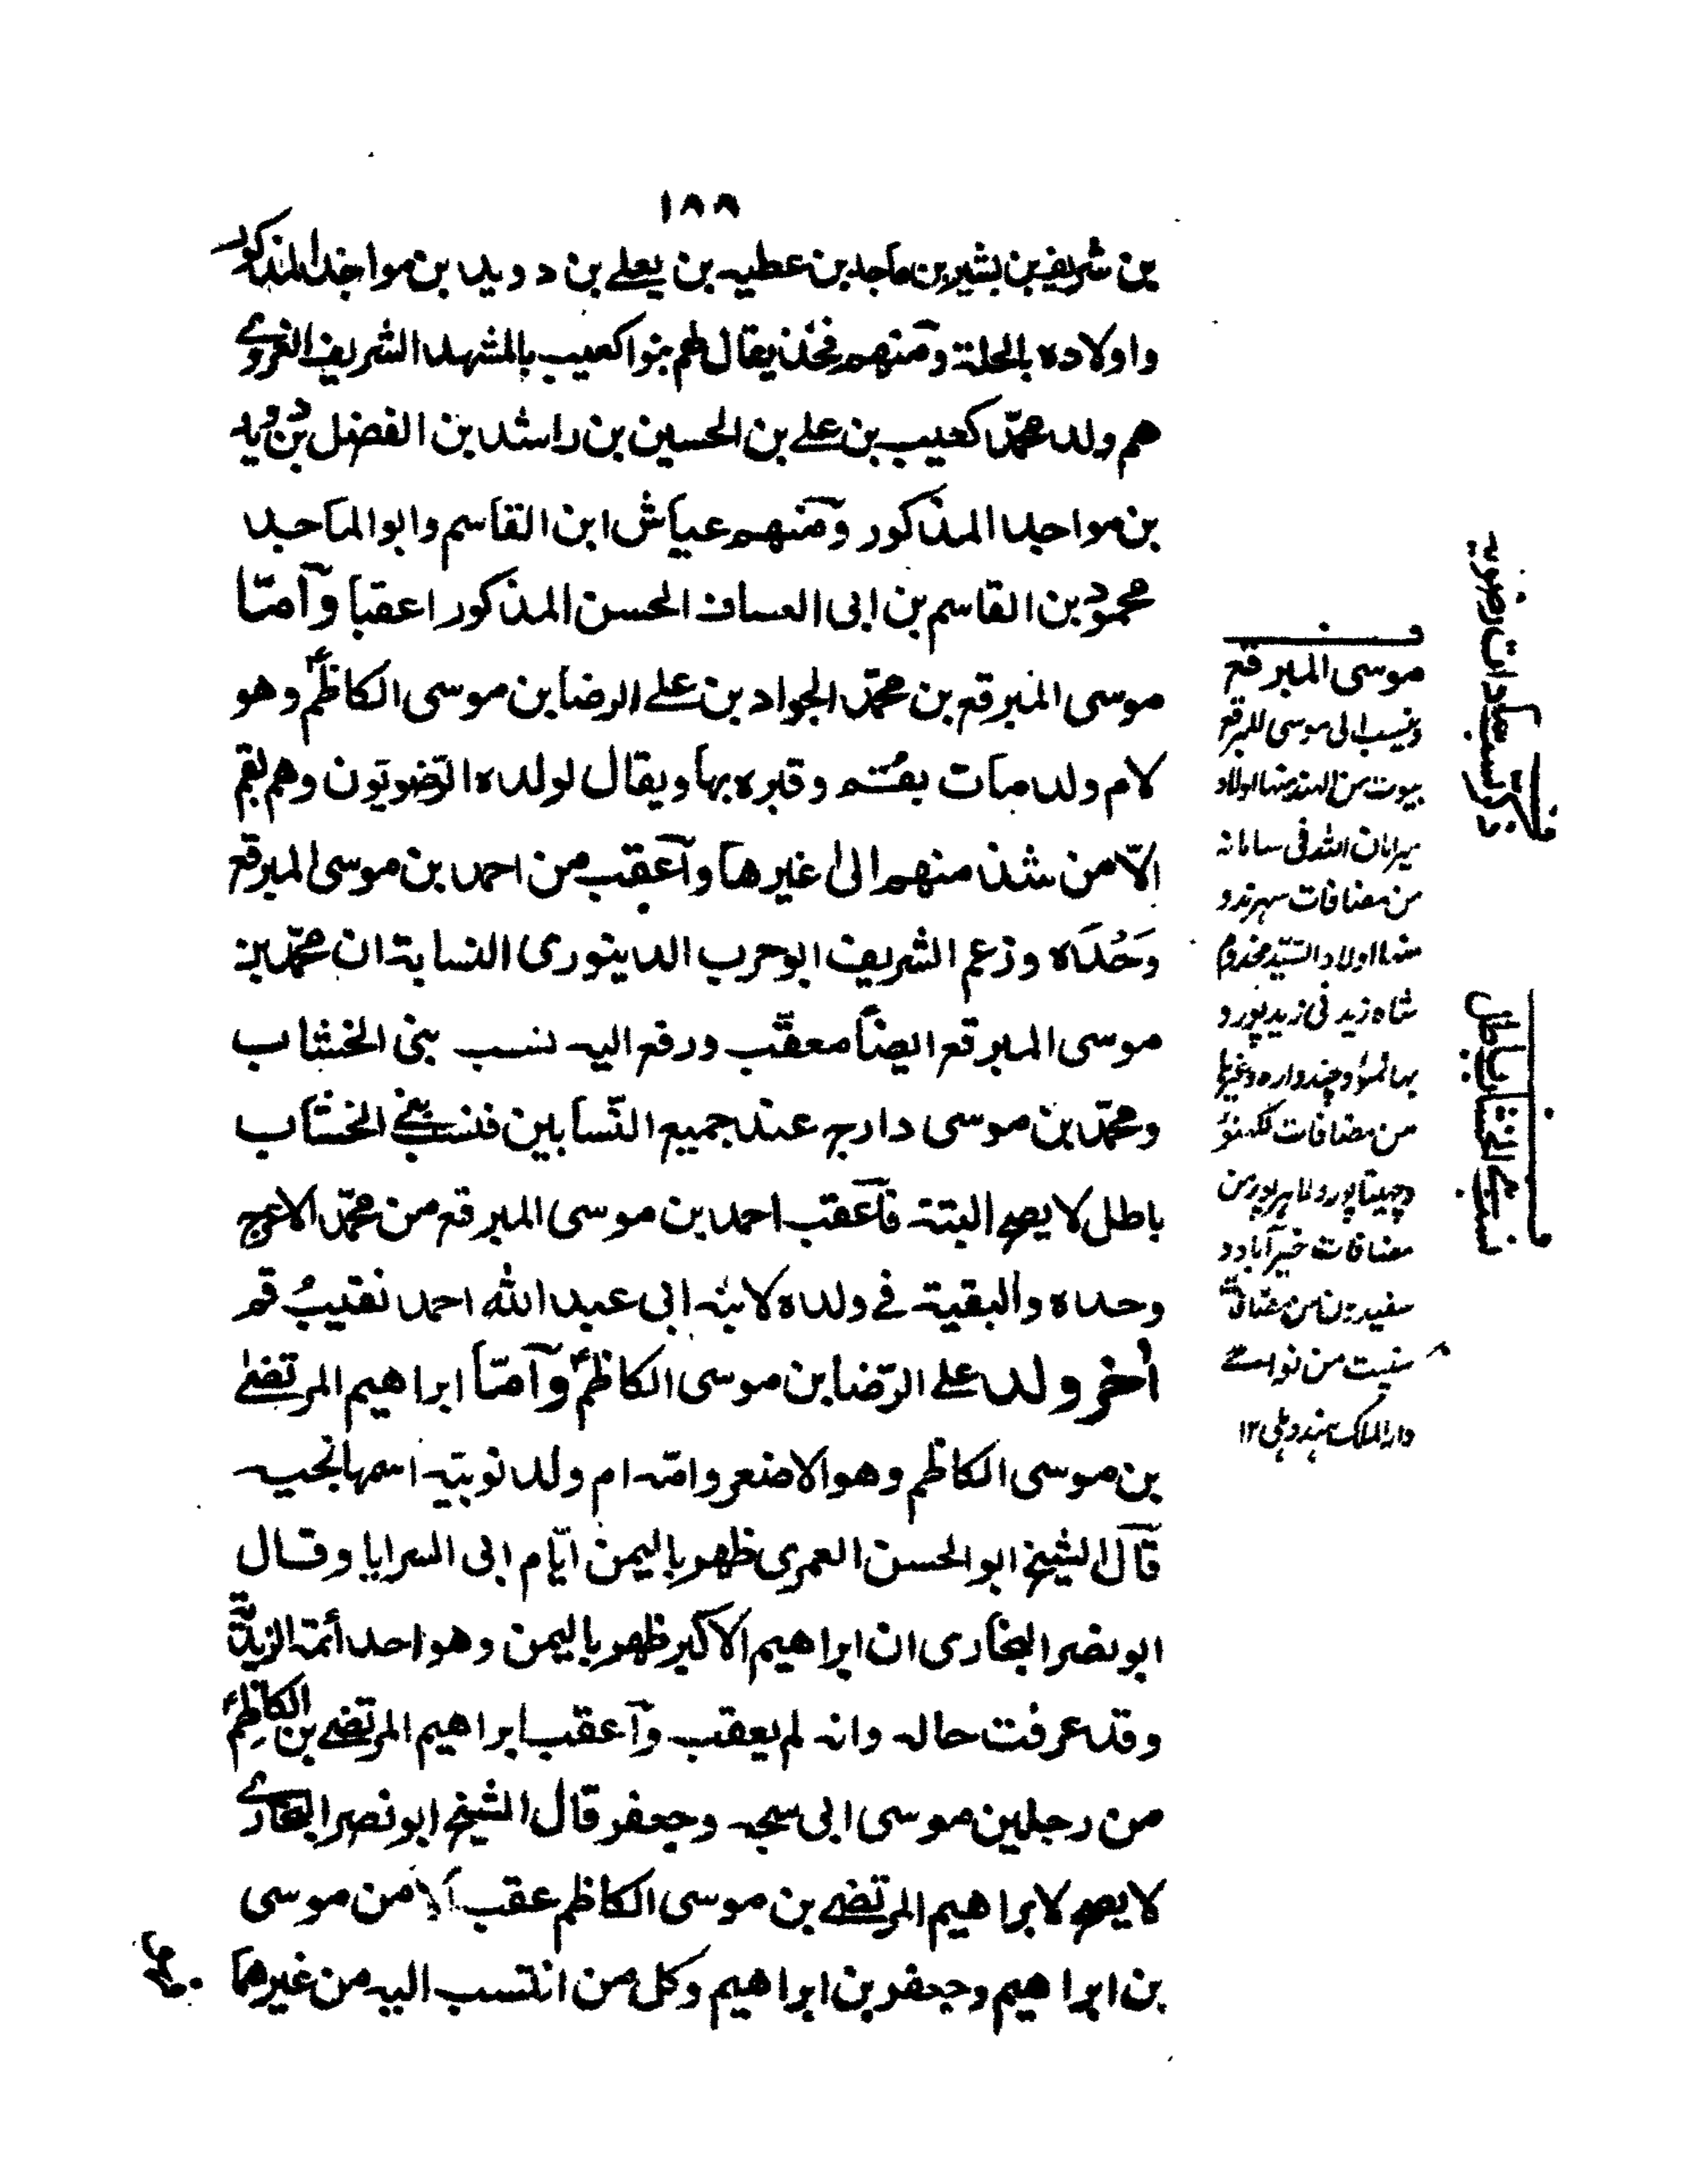 ١٨٨
بن شريف بن بشير بن ماجد بن عطيه بن يعلے بن دويد بن مواجد المذكور
واولاده بالحلة ومنهم فخذ يقال لهم بنوا كعيب بالمشهد الشريف الغروے
هم ولد محمّد كعيب بن علے بن الحسين بن راشد بن الفضل بن دويد
بن مواجد المذكور ومنهم عياش ابن القاسم وابو الماجد
محمود بن القاسم بن ابى العساف الحسن المذكور اعقبا وآمّا
موسى المبرقع بن محمّد الجواد بن علے الرضا بن موسى الكاظمؑ وهو
لام ولد مات بقم وقبره بها ويقال لولده الرّضويّون وهم بقم
الّا من شذ منهم الى غيرها وآعقب من احمد بن موسى المبرقع
وَحُدَه وزعم الشريف ابو حرب الدينورى النسابة ان محمّد بن
موسى المبرقع ايضاً معقّب ورفع اليه نسب بنى الخشاب
ومحمّد بن موسى دارج عند جميع النّسابين فنسب بنے الخشاب
باطل لا يصح البتة فآعقب احمد بن موسى المبرقع من محمّد الاعرج
وحده والبقية فے ولده لابنه ابى عبد الله احمد نقيبُ قم
اٰخر ولد علے الرّضا بن موسى الكاظمؑ وآمّا ابراهيم المرتضےٰ
بن موسى الكاظم وهو الاصغر وامّه ام ولد نوبيّة اسمها نجيه
قال الشيخ ابو الحسن العمرى ظهر باليمن ايّام ابى السرايا وقال
ابو نصر البخارى ان ابراهيم الاكبر ظهر باليمن وهو احد أئمة الزيديّة
وقد عرفت حاله وانه لم يعقب وآعقب ابراهيم المرتضے بن الكاظمؑ
من رجلين موسى ابى سبحه وجعفر قال الشيخ ابو نصر البخارے
لا يصح لابراهيم المرتضے بن موسى الكاظم عقب الّا من موسى
بن ابراهيم وجعفر بن ابراهيم وكل من انتسب اليه من غيرهما
موسى المبرقع
وينسب الى موسى المبرقع
بيوت من الهند منها اولاد
ميرامان الله فى سامانه
من مضافات سهرند و
منها اولاد السيّد مخدوم
شاه زيد فى زيدپور و
من مضافات لكهنؤ
مضافات خيرآباد و
دار الملك هند دہلى ١٢
ف ذكر نسب سادات رضويه
ف نسب بنے الخشاب باطل